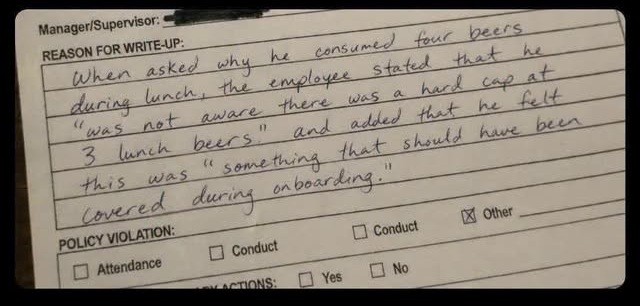 Manager/Supervisor:
REASON FOR WRITE-UP:
When asked why he consumed four beers
during lunch, the employee stated that he
"was not aware there was a hard cap at
3 lunch beers" and added that he felt
this was "something that should have been
covered during onboarding."
POLICY VIOLATION:
☐ Attendance ☐ Conduct ☐ Conduct ☒ Other
ACTIONS: ☐ Yes ☐ No